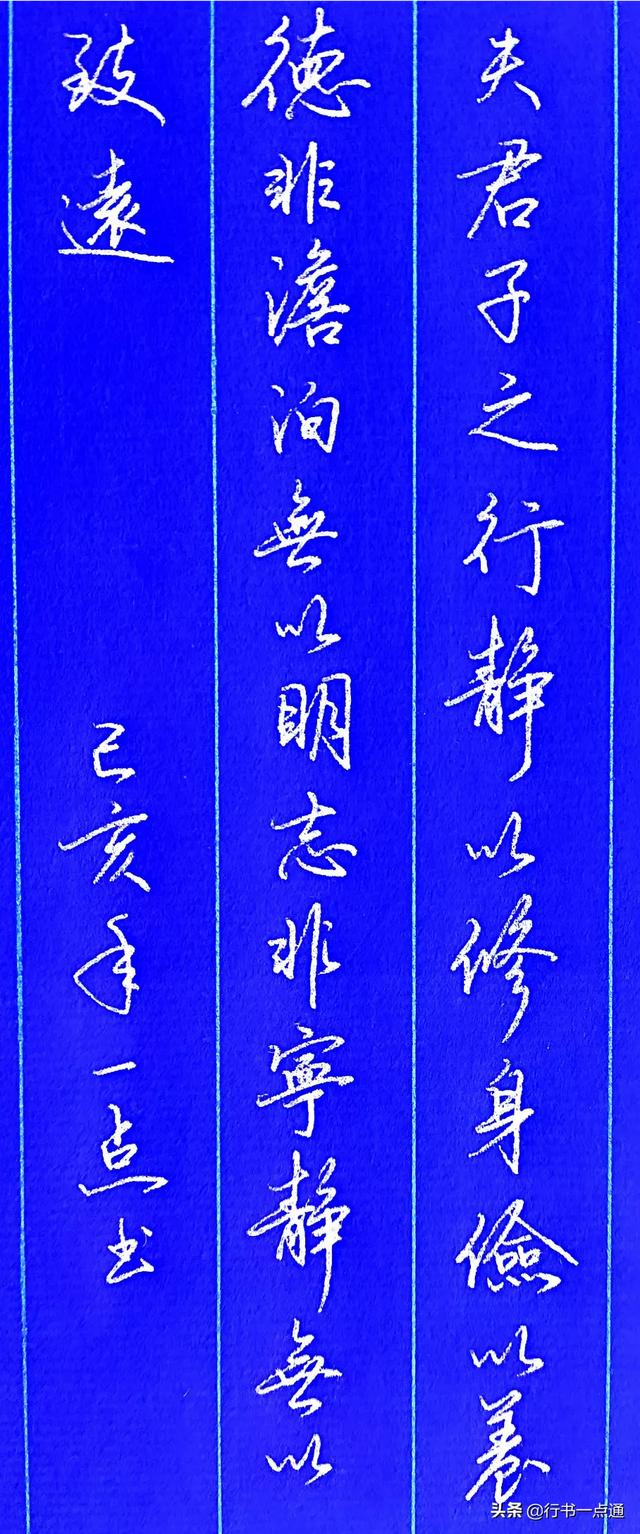 夫君子之行静以修身儉以養
徳非澹泊無以明志非寧静無以
致遠
己亥年一点书
头条 @行书一点通